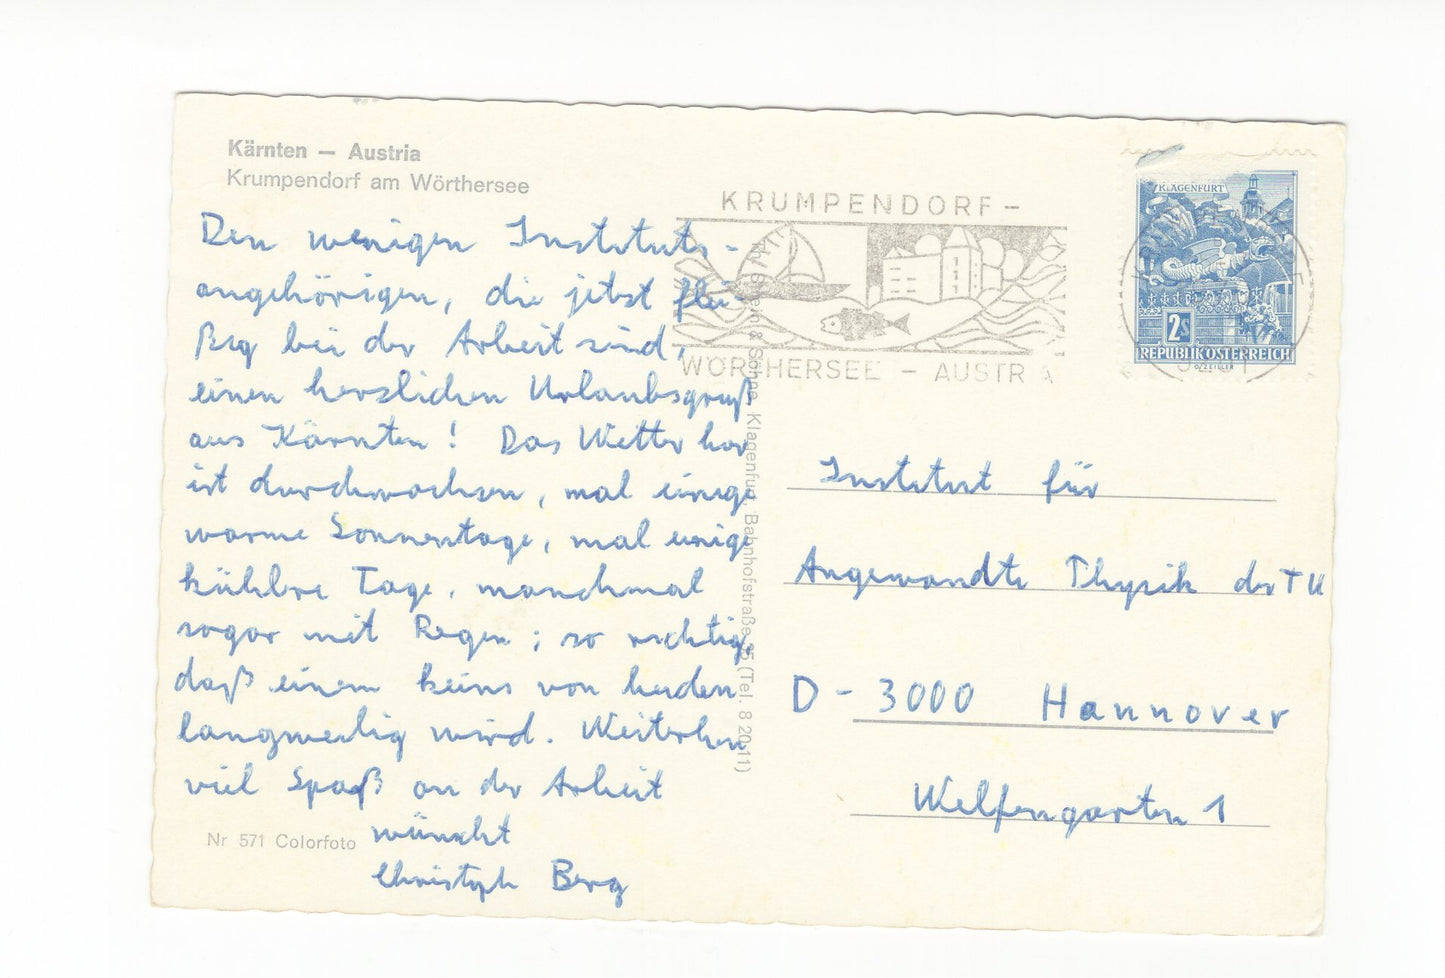 Kärnten — Austria
Krumpendorf am Wörthersee
Den wenigen Instituts-
angehörigen, die jetzt flei-
ßig bei der Arbeit sind,
einen herzlichen Urlaubsgruß
aus Kärnten! Das Wetter hier
ist durchwachsen, mal einige
warme Sonnentage, mal einige
kühlere Tage, manchmal
sogar mit Regen; so richtig,
daß einem keins von beiden
langweilig wird. Weiterhin
viel Spaß an der Arbeit
wünscht
Christoph Berg
Nr 571 Colorfoto
& Söhne, Klagenfurt, Bahnhofstraße 35 (Tel. 8 20 11)
KRUMPENDORF -
WÖRTHERSEE - AUSTRIA
KLAGENFURT
2S
REPUBLIK ÖSTERREICH
O/ZEILER
Institut für
Angewandte Physik der TU
D - 3000 Hannover
Welfengarten 1